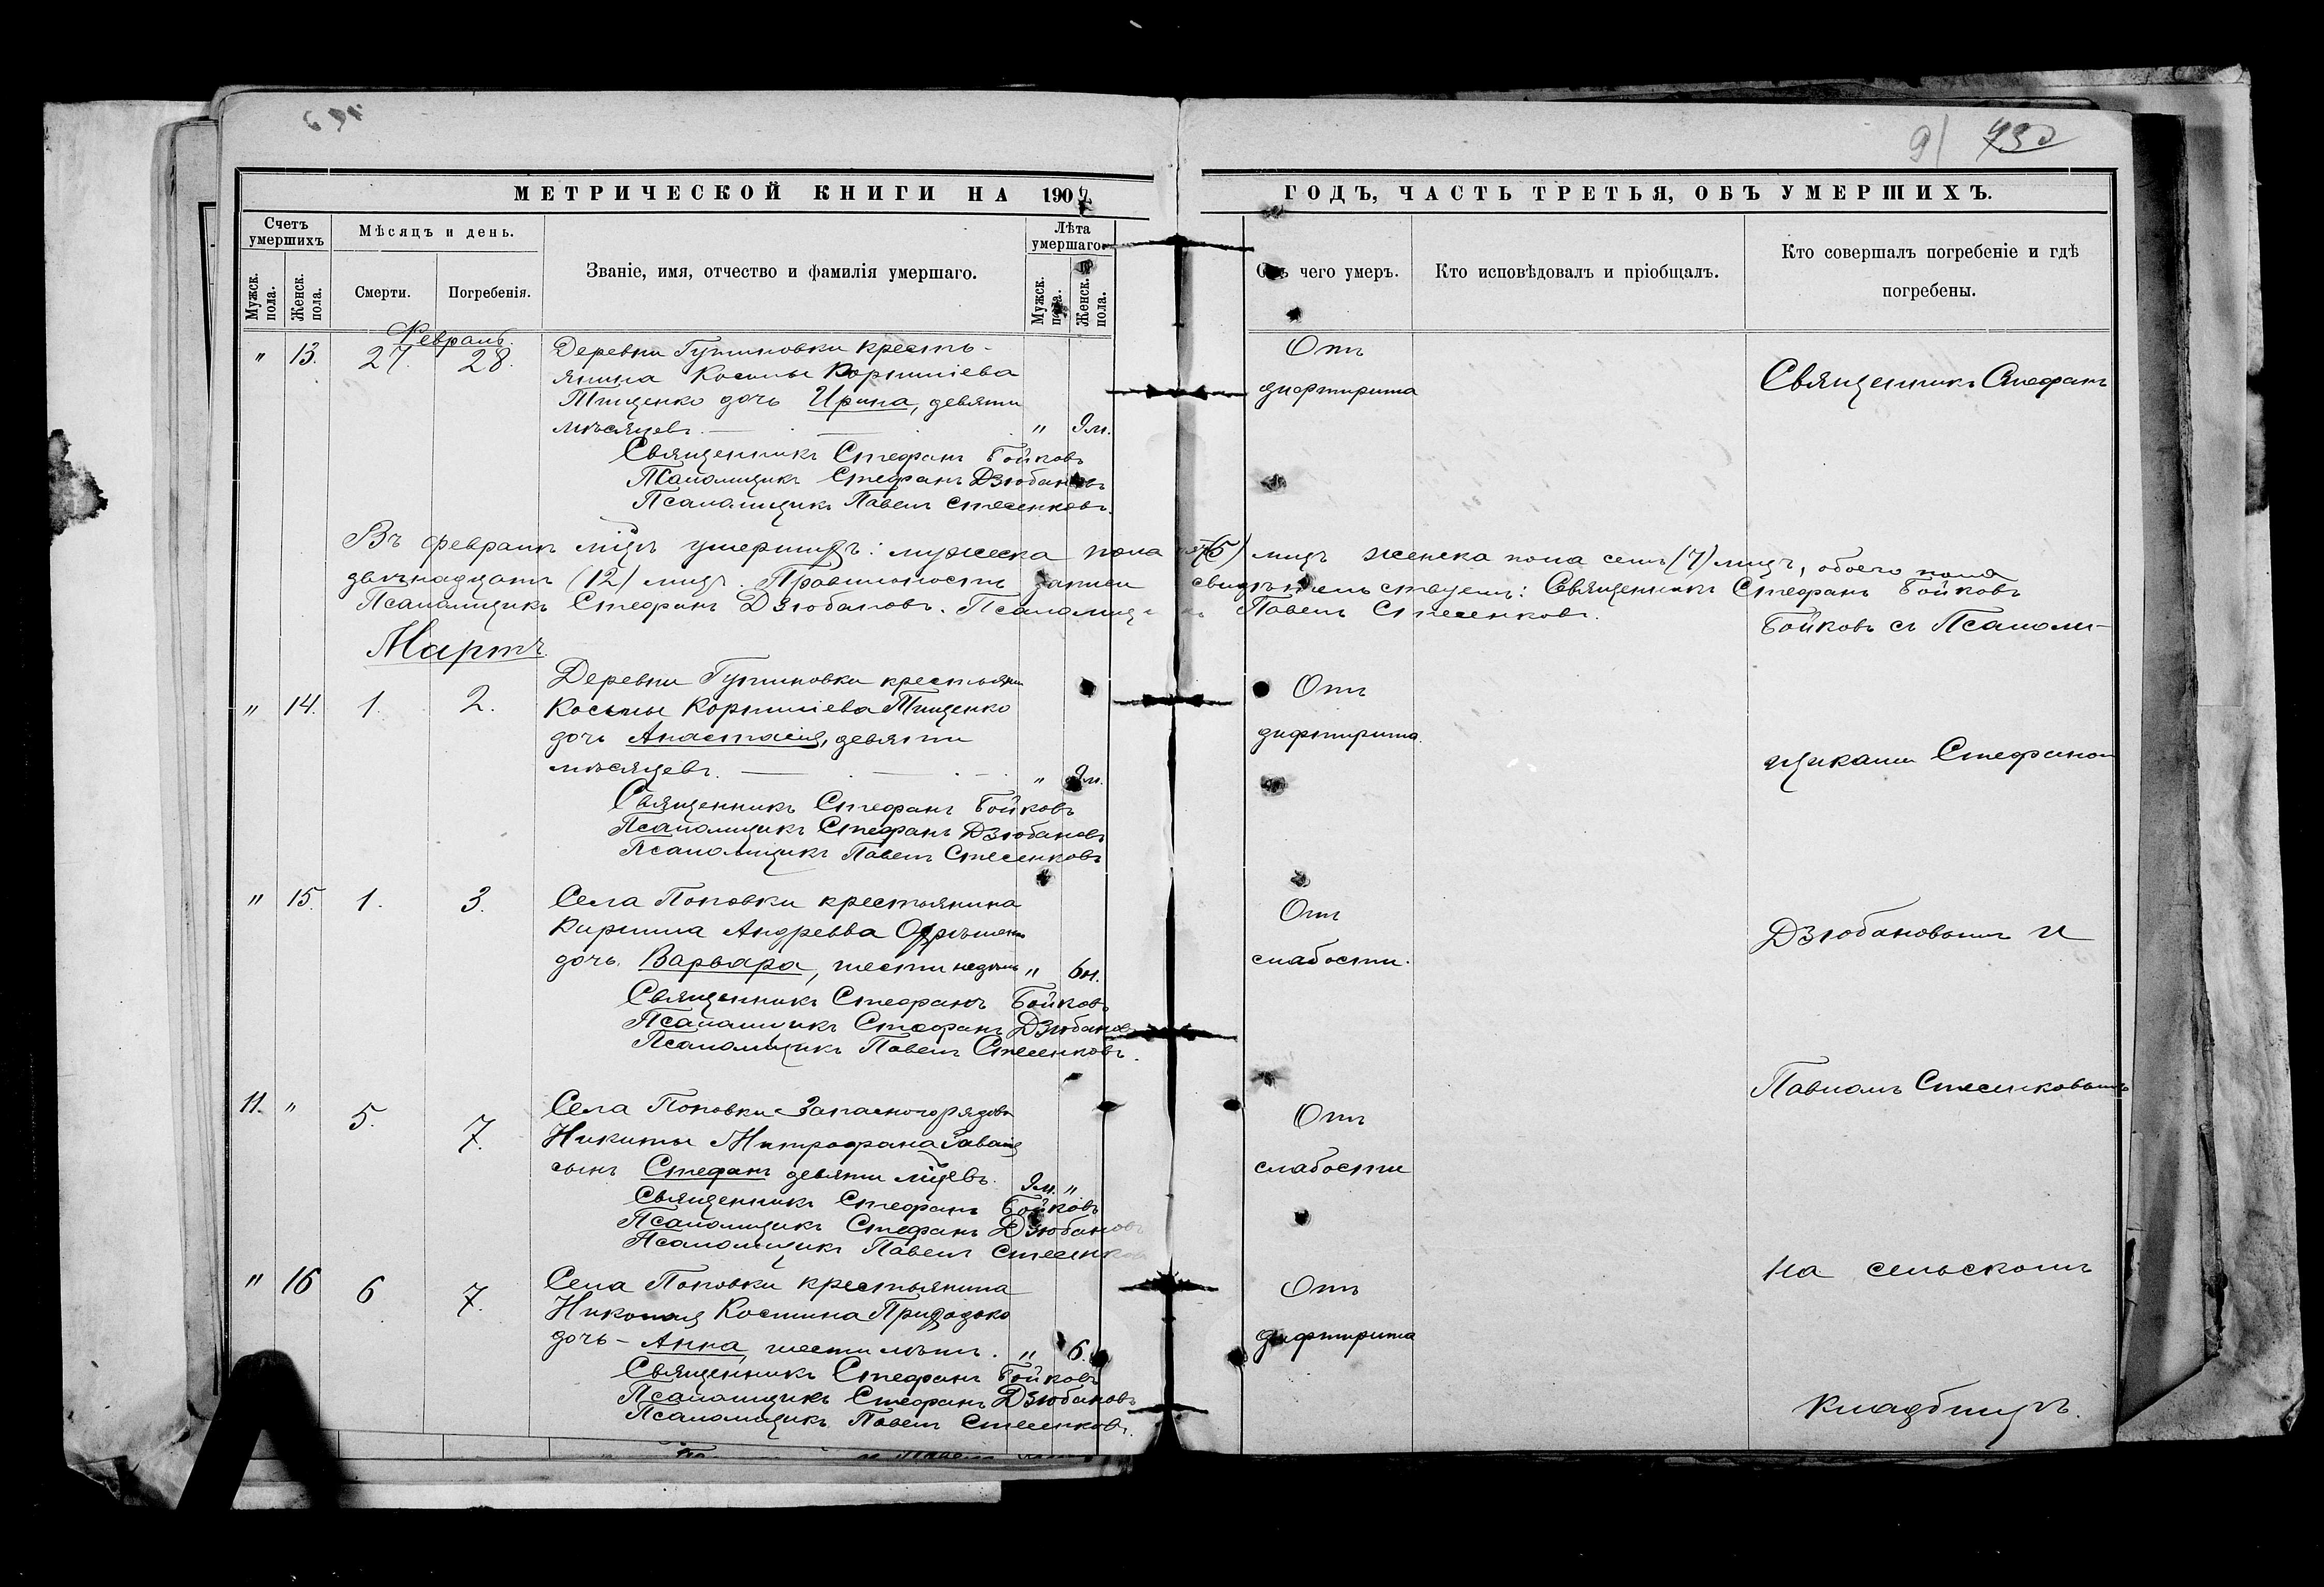 91 730
МЕТРИЧЕСКОЙ КНИГИ НА 190
ГОДЪ, ЧАСТЬ ТРЕТЬЯ, ОБЪ УМЕРШИХЪ.
Счетъ умершихъ
Мѣсяцъ и день.
Званіе, имя, отчество и фамилія умершаго.
Лѣта умершаго.
чего умеръ.
Кто исповѣдовалъ и пріобщалъ.
Кто совершалъ погребеніе и гдѣ погребены.
Мужск. пола.
Женск. пола.
Смерти.
Погребенія.
Мужск. пола.
Женск. пола.
Февраль.
" 13. 27. 28. Деревни Гутиновки кресть-
янина Косьмы Корниліева
Тищенко дочь Ирина, девяти
мѣсяцевъ. " 9 м.
Отъ
дифтирита
Священникъ Стефанъ Бойковъ
Псаломщикъ Стефанъ Дзюбановъ
Псаломщикъ Павелъ Стесенковъ.
Священникъ Стефанъ
Въ февралѣ мцѣ умершихъ: мужеска пола (5) лицъ женска пола семь (7) лицъ, обоего пола
двѣнадцать (12) лицъ. Правильность записи свидѣтельствуемъ: Священникъ Стефанъ Бойковъ
Псаломщикъ Стефанъ Дзюбановъ. Псаломщикъ Павелъ Стесенковъ.
Бойковъ съ Псалом-
Мартъ
" 14. 1. 2. Деревни Гутиновки крестьянина
Косьмы Корниліева Тищенко
дочь Анастасія, девяти
мѣсяцевъ. " 9 м.
Отъ
дифтирита.
Священникъ Стефанъ Бойковъ
Псаломщикъ Стефанъ Дзюбановъ
Псаломщикъ Павелъ Стесенковъ
щиками Стефаномъ
" 15. 1. 3. Села Поповки крестьянина
Кирилла Андреева
дочь Варвара, шести недѣль " 6 н.
Отъ
слабости.
Священникъ Стефанъ Бойковъ
Псаломщикъ Стефанъ Дзюбановъ
Псаломщикъ Павелъ Стесенковъ.
Дзюбановымъ и
11. " 5. 7. Села Поповки Запаснаго рядов.
Никиты Митрофана
сынъ Стефанъ девяти мцевъ. 9 м. "
Отъ
слабости
Священникъ Стефанъ Бойковъ
Псаломщикъ Стефанъ Дзюбановъ
Псаломщикъ Павелъ Стесенковъ
Павломъ Стесенковымъ
" 16 6 7. Села Поповки крестьянина
Николая Костина Приходько
дочь - Анна, шести лѣтъ. " 6.
Отъ
дифтирита
Священникъ Стефанъ Бойковъ
Псаломщикъ Стефанъ Дзюбановъ
Псаломщикъ Павелъ Стесенковъ.
на сельскомъ
кладбищѣ.